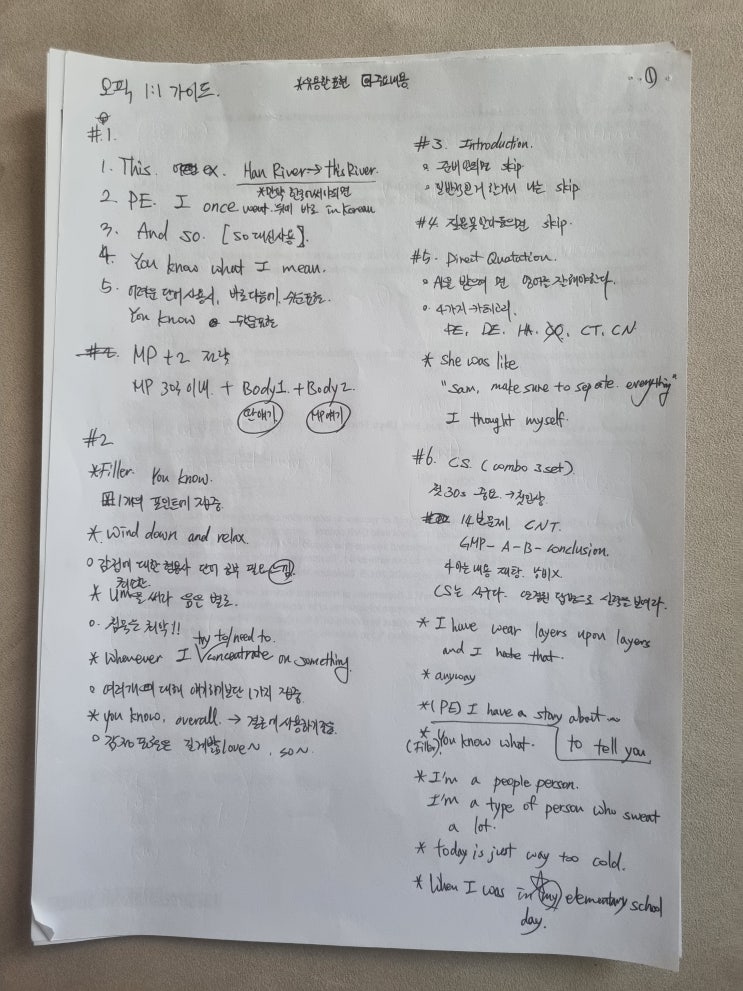 오픽 1:1 가이드.
*유용한 표현 ◎주요내용
①
#1.
1. This. ex. Han River → this River.
*만약 한국어써야되면
2. PE. I once went. 뒤에 바로 in Korean
3. And so. [so 대신사용].
4. You know what I mean.
5. 어려운 단어 사용시, 바로 다음에 쉬운표현.
You know 쉬운표현
MP + 2 전략
MP 3덕 이내. + Body1. + Body2.
딴얘기 MP얘기
#2
*Filler. You know.
1개의 포인트에 집중.
* Wind down and relax.
o 감정에 대한 형용사 단어 공부 필요
* Um을 써라 음은 별로.
최대한.
o. 침묵은 최악!!
* Whenever I try to/need to. concentrate on something.
o 여러개에 대해 얘기하기보단 1가지 집중.
* you know, overall. → 결론에 사용하기좋음.
o 감정 표현은 길게발음 love~, so~
#3. Introduction.
o 준비 안되면 skip
o 일반적인거 한거나 나는 skip
#4 질문 못알아들으면 skip.
#5. Direct Quatation.
o AL을 받으려면 영어는 잘해야한다.
o 4가지 카테고리.
PE, DE, HA, CT, CN
* she was like
"Sam, make sure to sepate. everything"
I thought myself.
#6. CS. (combo 3 set)
첫 30s 중요. → 첫인상.
14번문제 CNT.
GMP - A - B - conclusion.
아는내용 재탕. 낭비X.
CS는 쉬다. 안정된 답변으로 시작을 보여라.
* I have wear layers upon layers
and I hate that.
* anyway
*(PE) I have a story about ~
to tell you
* You know what.
(Filler)
* I'm a people person.
I'm a type of person who sweat
a lot.
* today is just way too cold.
* When I was in my elementary school
day.